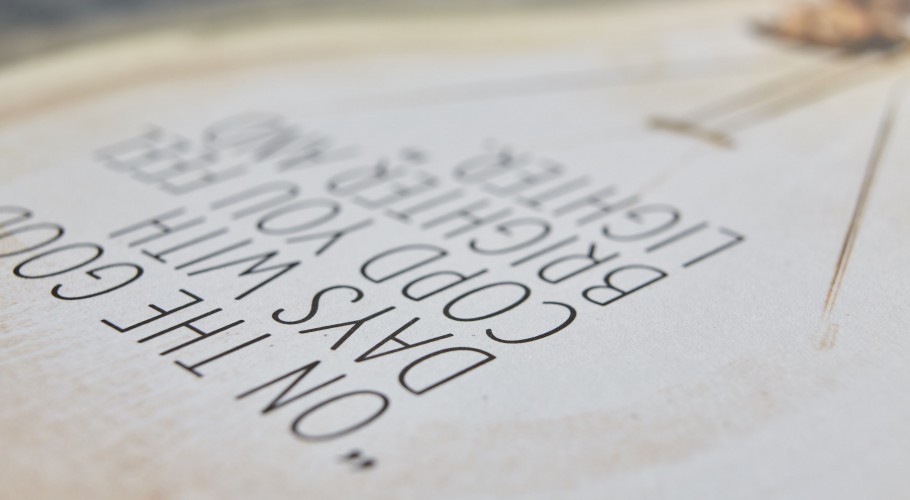 “ON THE GOOD
DAYS WITH
COPD YOU FEEL
BRIGHTER AND
LIGHTER.”